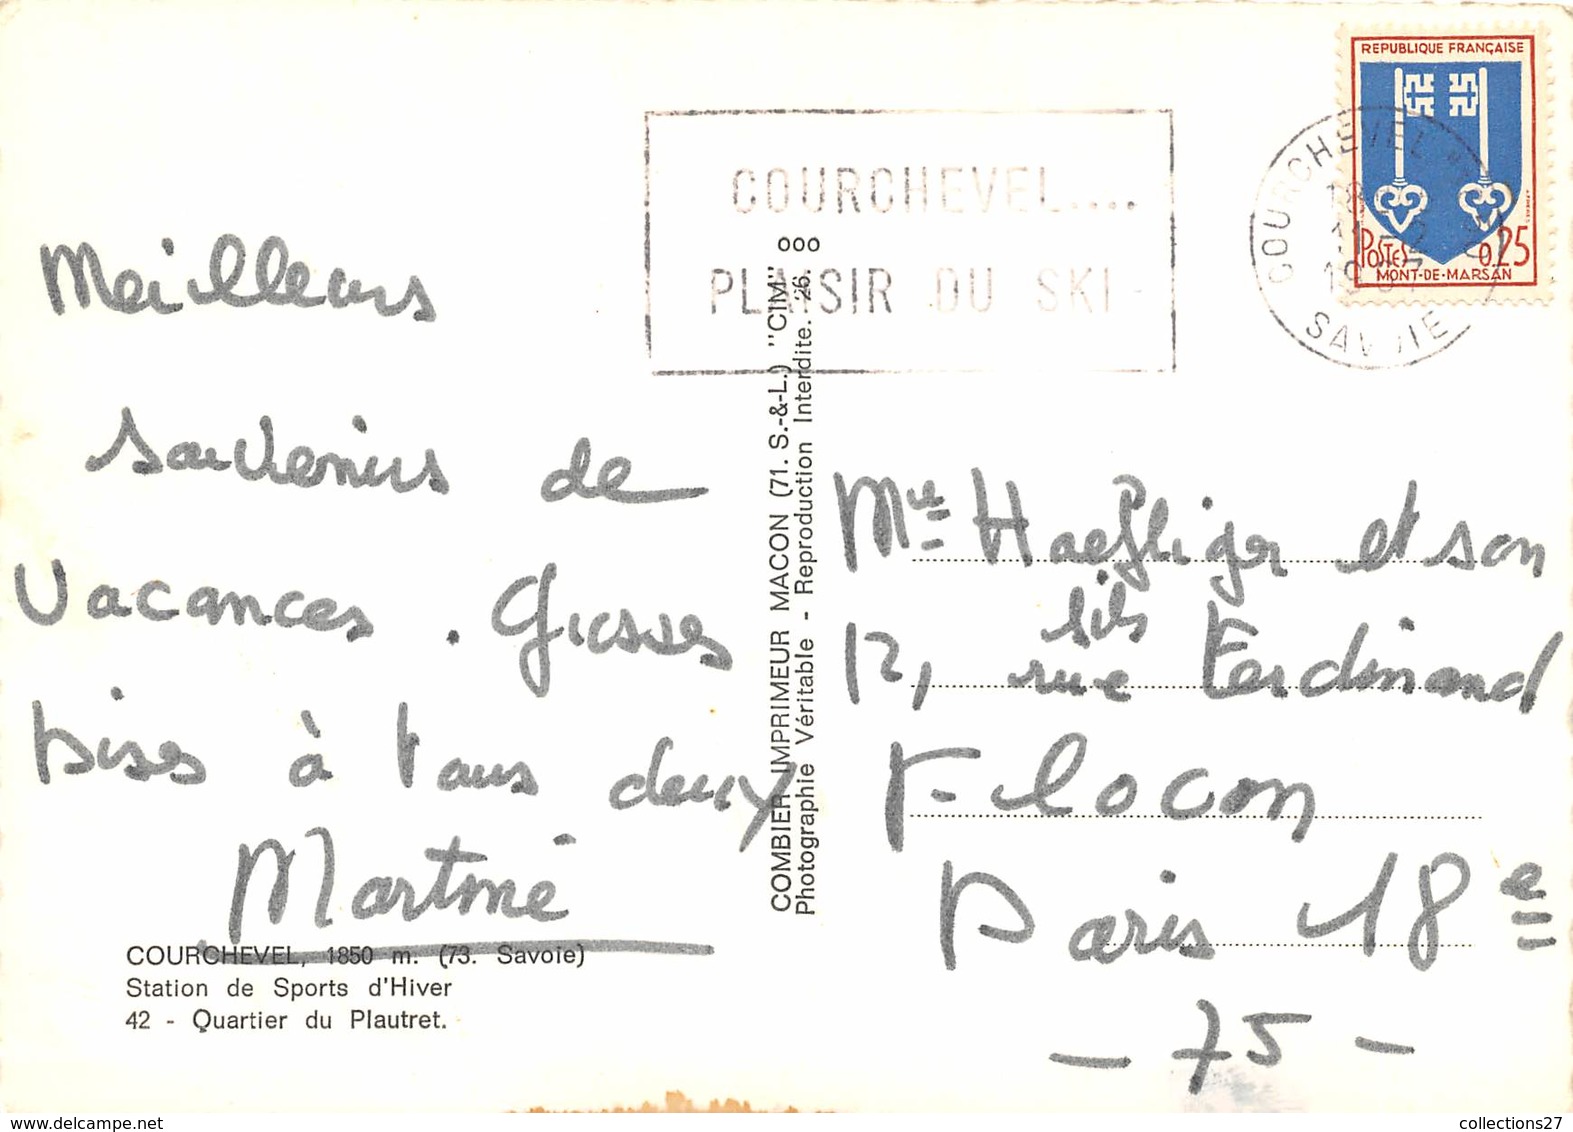 REPUBLIQUE FRANÇAISE
POSTES 0,25
MONT-DE-MARSAN
COURCHEVEL
SAVOIE
COURCHEVEL....
PLAISIR DU SKI
Meilleurs
souvenirs de
vacances. Grosses
bises à tous deux
Martine
COURCHEVEL, 1850 m. (73. Savoie)
Station de Sports d'Hiver
42 - Quartier du Plautret.
COMBIER IMPRIMEUR MACON (71. S.-&-L.) "CIM"
Photographie Véritable - Reproduction Interdite. 26.
ooo
Mme Haefliger et son
fils
12, rue Ferdinand
Flocon
Paris 18e
- 75 -
collections27